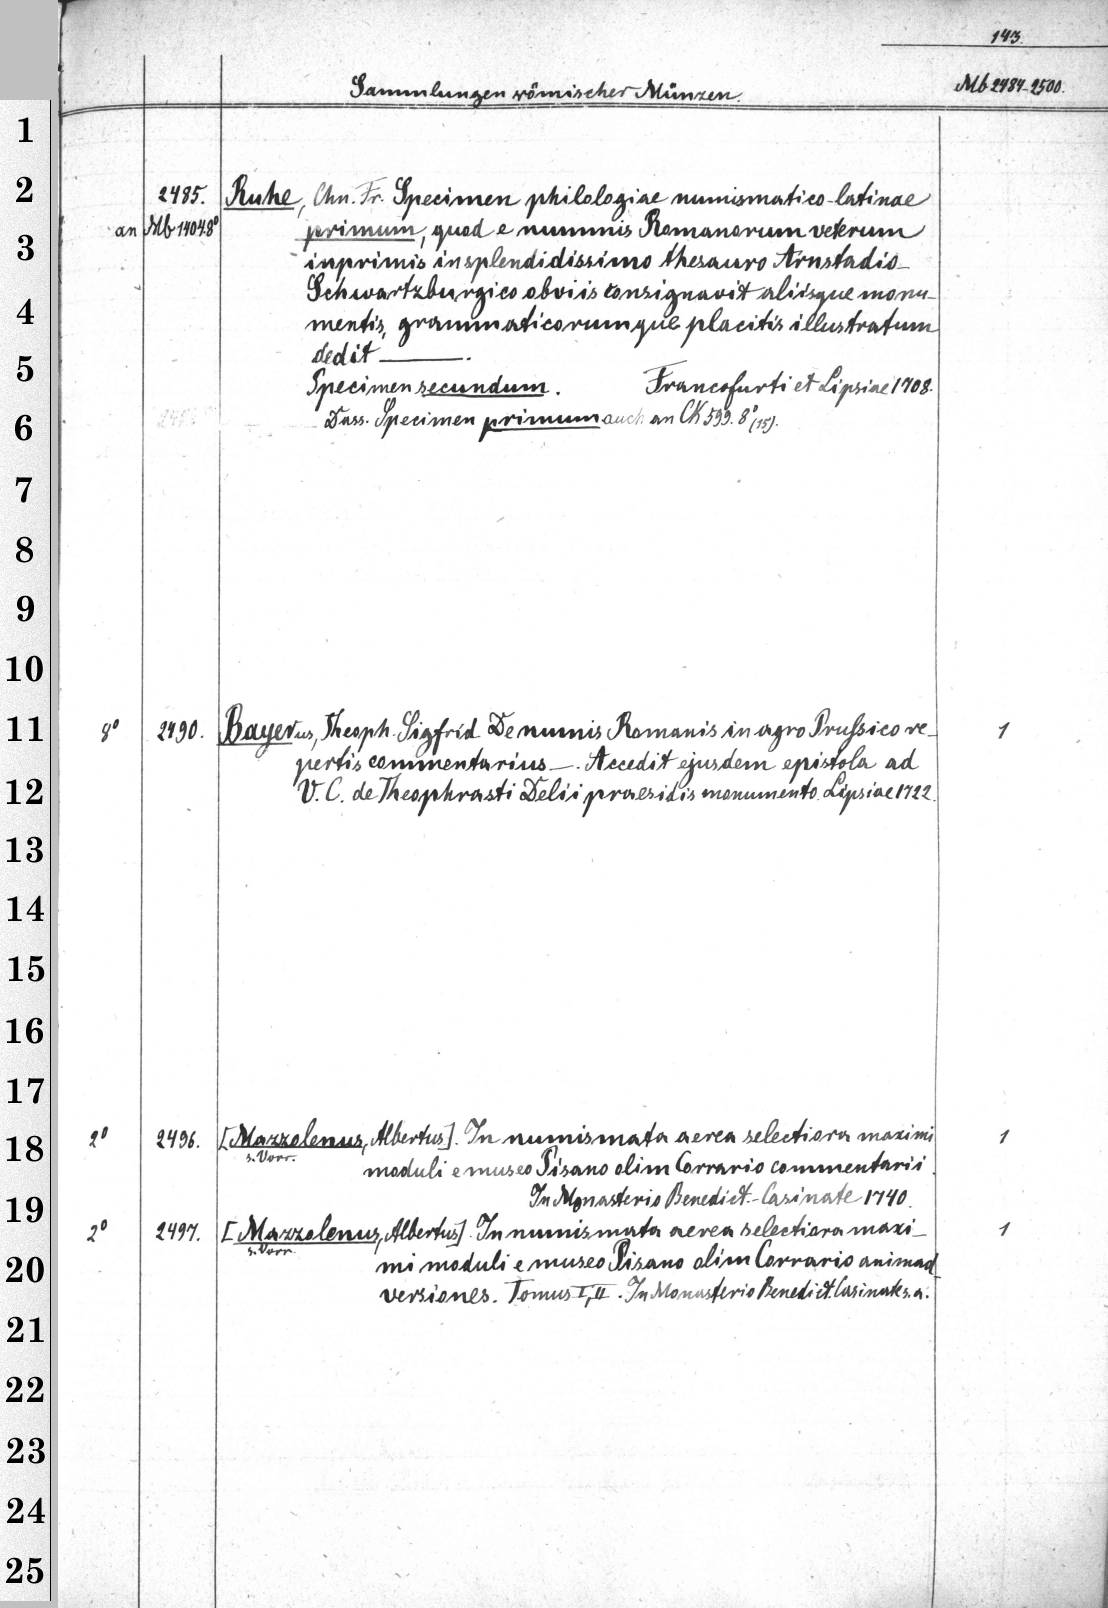 143.
Sammlungen römischer Münzen.
Mb 2484-2500.
1
2
3
4
5
6
7
8
9
10
11
12
13
14
15
16
17
18
19
20
21
22
23
24
25
2485. Ruhe, Chn. Fr. Specimen philologiae numismatico-latinae
an Mb 1404 8° primum, quod e nummis Romanorum veterum
inprimis in splendidissimo thesauro Arnstadio-
Schwartzburgico obviis consignavit aliisque monu-
mentis, grammaticorumque placitis illustratum
dedit ———.
Specimen secundum. Francofurti et Lipsiae 1708.
Dass. Specimen primum auch an CK 599. 8° (15).
8° 2490. Bayerus, Theoph. Sigfrid De numis Romanis in agro Prussico re- 1
pertis commentarius —. Accedit ejusdem epistola ad
V. C. de Theophrasti Delii praesidis monumento. Lipsiae 1722.
2° 2496. [Mazzolenus, Albertus]. In numismata aerea selectiora maximi 1
s. Vorr.
moduli e museo Pisano olim Corrario commentarii.
In Monasterio Benedict.-Casinate 1740.
2° 2497. [Mazzolenus, Albertus]. In numismata aerea selectiora maxi- 1
s. Vorr.
mi moduli e museo Pisano olim Corrario animad-
versiones. Tomus I, II. In Monasterio Benedict. Casinate s. a.